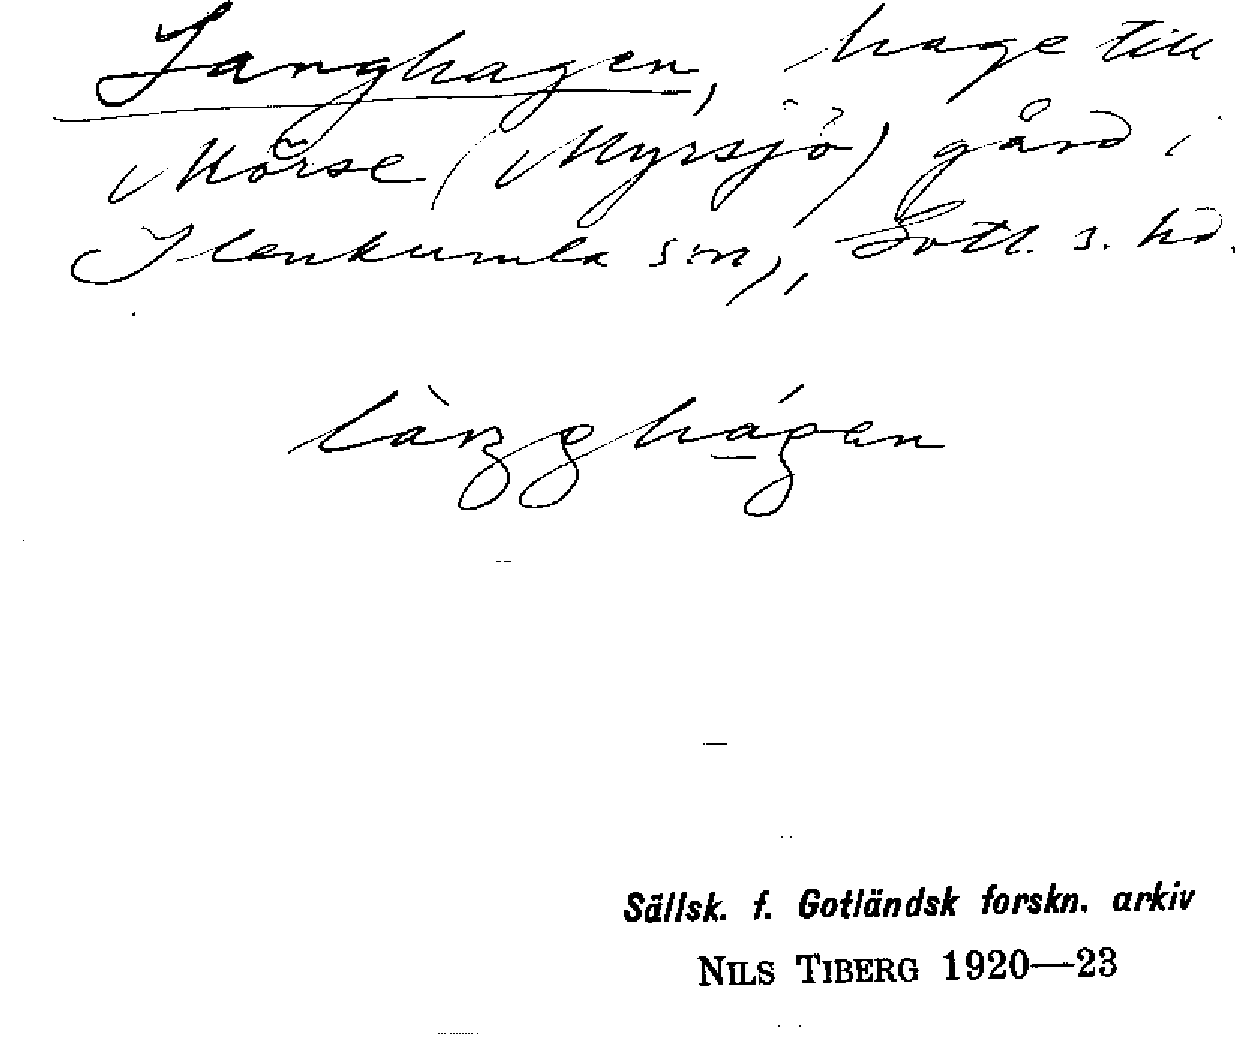 Langhagen, hage till
Mörse (Myrsjö) gård i
Stenkumla sn), Gotl. s. hd.
làŋghágen
Sällsk. f. Gotländsk forskn. arkiv
NILS TIBERG 1920—23